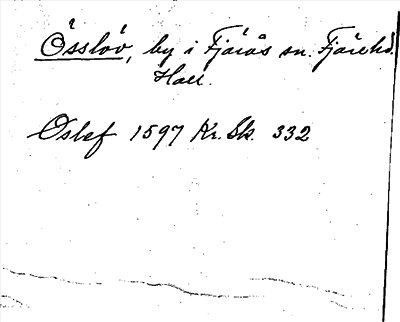 Össlöv, by i Fjärås sn. Fjäre hd.
Hall.
Øslef 1597 Kr. Sk. 332